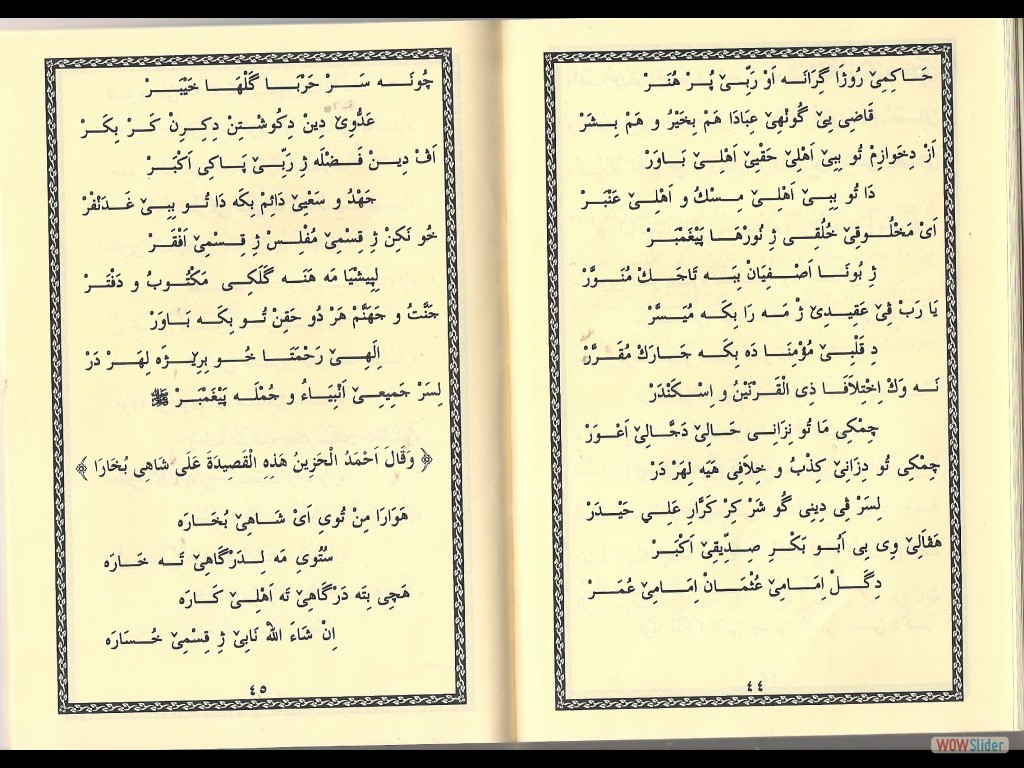 حَاكِمِىْ رُوژَا گِرَانَـه اَوْ رَبِّـىْ پُـرْ هُنَـرْ
قَاضِى بِىْ گُونْهِىْ عِبَادَا هَمْ بِخَيْرُ و هَمْ بِشَرْ
اَزْ دِخَوازِمْ تُو بِبِىْ اَهْلِىْ حَقْيِىْ اَهْلِـىْ بَـاوَرْ
دَا تُو بِبِىْ اَهْلِـىْ مِـسْكُ و اَهْلِـىْ عَنْبَـرْ
اَىْ مَخْلُـوقِىْ خُلُقِـى ژِ نُورْهَـا پَيْغَمْبَـرْ
ژِ بُونَـا اَصْـفِيَانْ بِبَـه تَاجَـكْ مُنَـوَّرْ
يَا رَبْ ڤِىْ عَقِيدِىْ ژْ مَـه رَا بِكَـه مُيَـسَّرْ
دِ قَلْبِـىْ مُؤْمِنَـا دَه بِكَـه جَـارَكْ مُقَـرَّرْ
نَـه وَكْ اِخْتِلَافَـا ذِى الْقَرْنَيْنُ و اِسْـكَنْدَرْ
چِمْكِى مَا تُو نِزَانِـى حَـالِىْ دَجَّـالِىْ اَعْـوَرْ
چِمْكِى تُو دِزَانِىْ كِذْبُ و خِلَافِى هَيَه لِهَرْ دَرْ
لِسَرْ ڤِى دِينِى گُو شَرْ كِرْ كَرَّارِ عَلِـي حَيْـدَرْ
هَڤَالِىْ وِى بِى اَبُـو بَكْـرِ صِـدِّيقِىْ اَكْبَـرْ
دِگَـلْ اِمَـامِىْ عُثْمَـانْ اِمَـامِىْ عُمَـرْ
٤٤
چُونَـه سَـرْ حَرْبَـا گَلْهَـا خَيْبَـرْ
عَدُّوِىْ دِينْ دِكُوشْـتِنْ دِكِـرِنْ كَـرْ بِكَـرْ
اَڤْ دِيـنْ فَـضْلَه ژِ رَبِّـىْ پَـاكِى اَكْبَـرْ
جَهْدُ و سَعْيِىْ دَائِمْ بِكَه دَا تُـو بِبِـىْ غَـدَنْفَرْ
خُو نَكِنْ ژِ قِسْمِىْ مُفْلِـسْ ژِ قِـسْمِىْ اَفْقَـرْ
لِپِيشْيَا مَه هَنَـه گَلَكِـى مَكْتُـوبُ و دَفْتَـرْ
جَنَّتُ و جَهَنَّمْ هَرْ دُو حَقِنْ تُـو بِكَـه بَـاوَرْ
اِلَهِـىْ رَحْمَتَـا خُـو بِرِيـژَه لِهَـرْ دَرْ
لِسَرْ جَمِيعِـىْ اَنْبِيَـاءُ و جُمْلَـه پَيْغَمْبَـرْ ﷺ
﴿ وَقَالَ اَحْمَدُ الْحَزِينُ هَذِهِ الْقَصِيدَةَ عَلَى شَاهِى بُخَارَا ﴾
هَوَارَا مِنْ تُوىِ اَىْ شَـاهِىْ بُخَـارَه
سْتُوىِ مَه لِـدَرْگَاهِىْ تَـه خَـارَه
هَچِى بِتَه دَرْگَاهِىْ تَه اَهْلِـىْ كَـارَه
اِنْ شَاءَ اللهُ نَابِىْ ژِ قِسْمِىْ خُـسَارَه
٤٥
WOWSlider